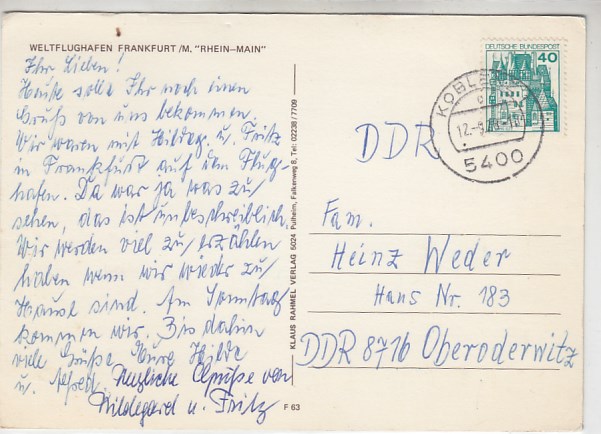 WELTFLUGHAFEN FRANKFURT/M. "RHEIN-MAIN"
Ihr Lieben!
Heute sollt Ihr noch einen
Gruß von uns bekommen.
Wir waren mit Hildeg. u. Fritz
in Frankfurt auf dem Flug-
hafen. Da war ja was zu
sehen, das ist unbeschreiblich.
Wir werden viel zu erzählen
haben wenn wir wieder zu
Hause sind. Am Sonntag
kommen wir. Bis dahin
viele Grüße Eure Hilde
u. Alfred. Herzliche Grüße von
Hildegard u. Fritz
KLAUS RAHMEL VERLAG 5024 Pulheim, Falkenweg 6, Tel: 02238/7709
F 63
DEUTSCHE BUNDESPOST
40
KOBLENZ
12.-
5400
DDR
Fam.
Heinz Weder
Haus Nr. 183
DDR 8716 Oberoderwitz